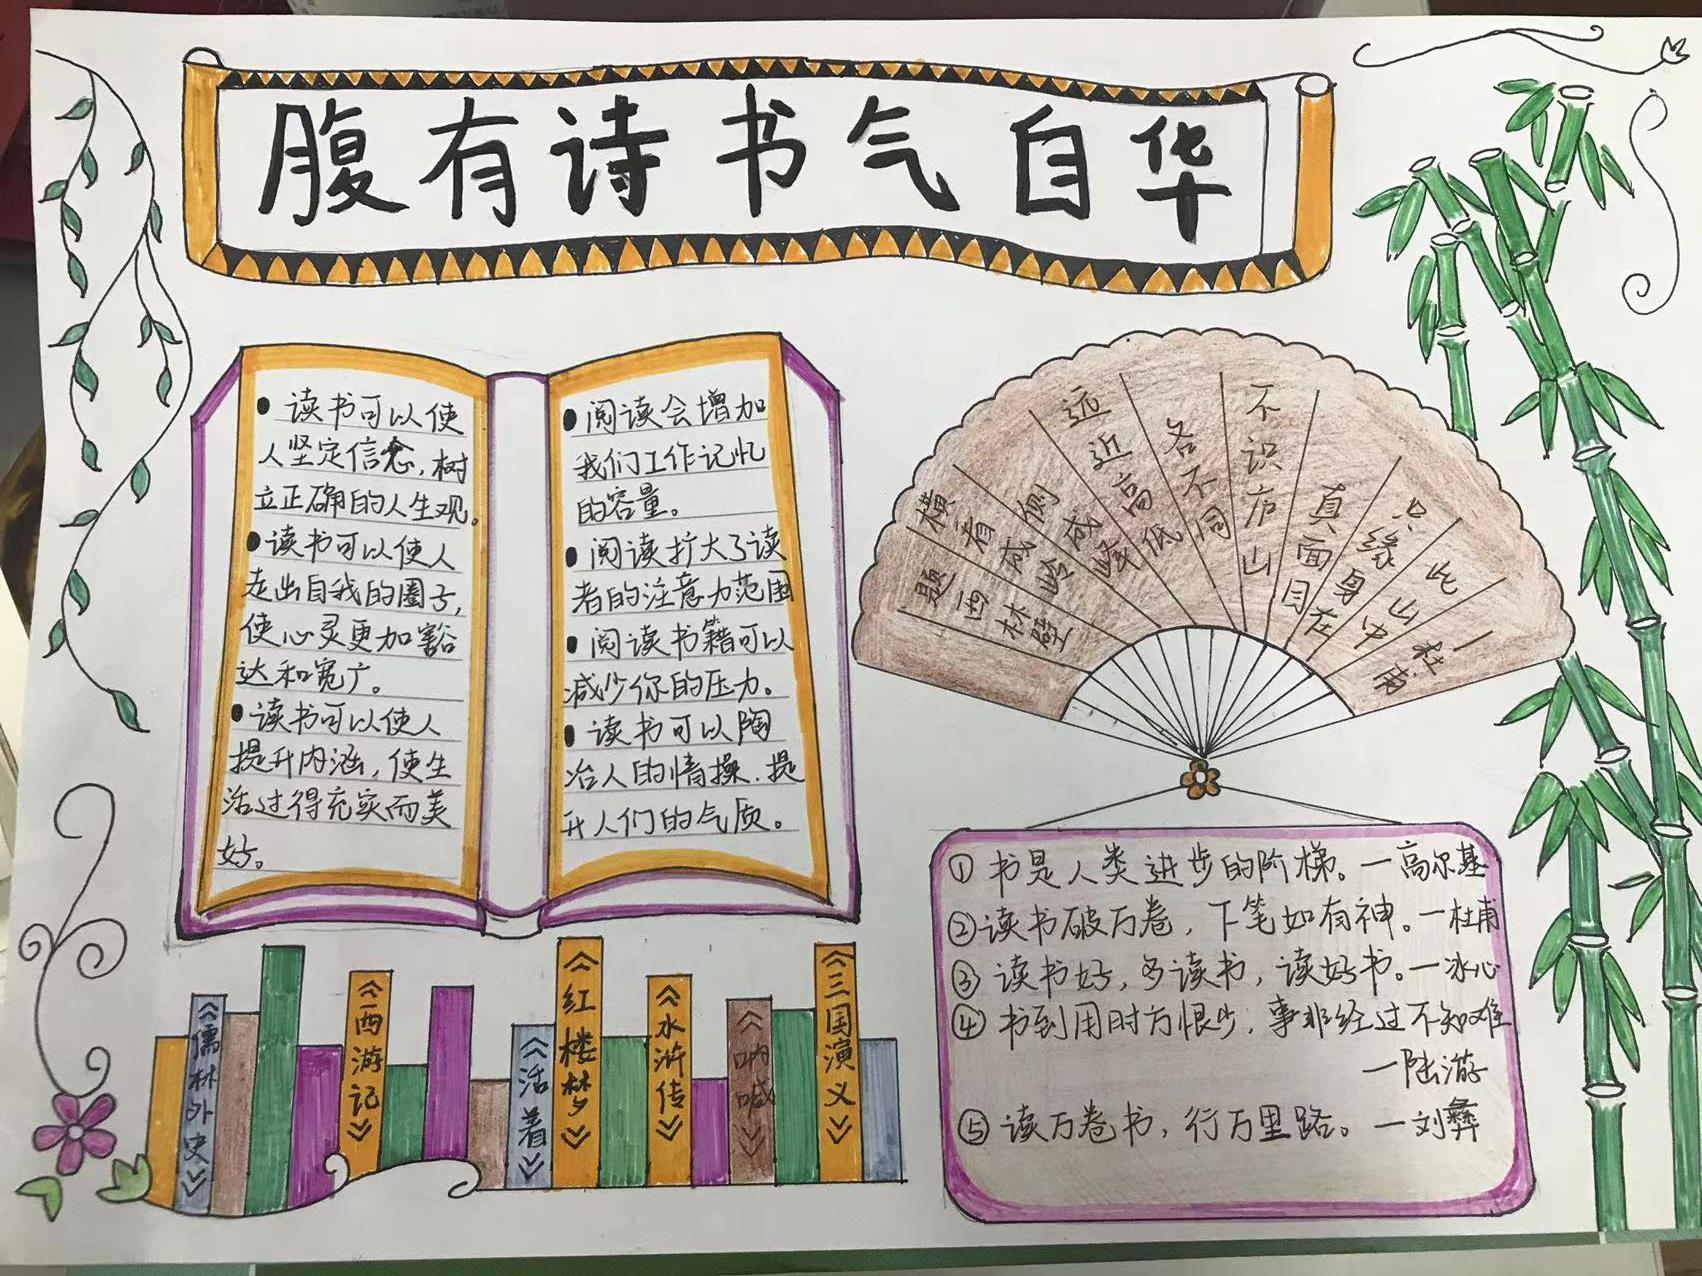 腹有诗书气自华
● 读书可以使
人坚定信念，树
立正确的人生观。
● 读书可以使人
走出自我的圈子，
使心灵更加豁
达和宽广。
● 读书可以使人
提升内涵，使生
活过得充实而美
好。
● 阅读会增加
我们工作记忆
的容量。
● 阅读扩大了读
者的注意力范围
● 阅读书籍可以
减少你的压力。
● 读书可以陶
冶人的情操．提
升人们的气质。
题西林壁
横看成岭
侧成峰
远近高低
各不同
不识庐山
真面目
只缘身在
此山中
杜甫
①书是人类进步的阶梯。一高尔基
②读书破万卷，下笔如有神。一杜甫
③读书好，多读书，读好书。一冰心
④书到用时方恨少，事非经过不知难
一陆游
⑤读万卷书，行万里路。一刘彝
《儒林外史》
《西游记》
《活着》
《红楼梦》
《水浒传》
《呐喊》
《三国演义》